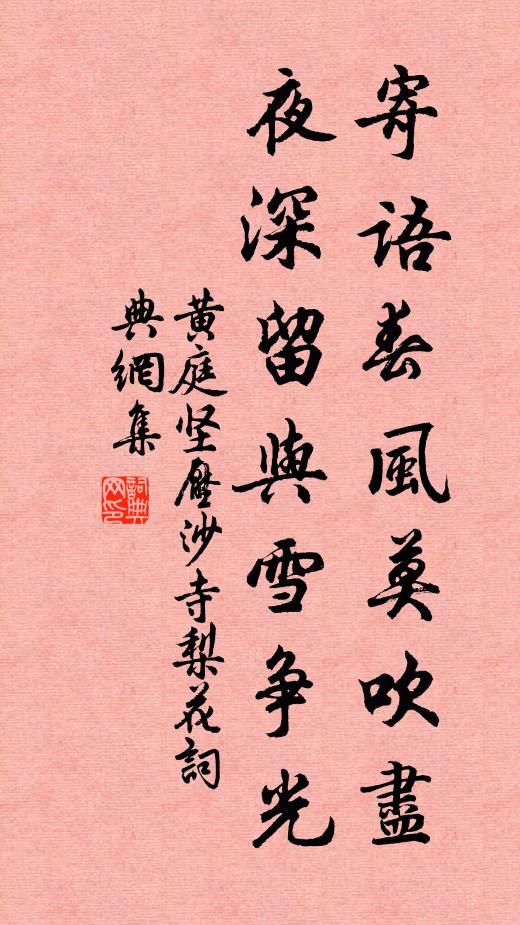 寄語春風莫吹盡
夜深留與雪争光
黄庭坚壓沙寺梨花詞
典網集
詞典網印